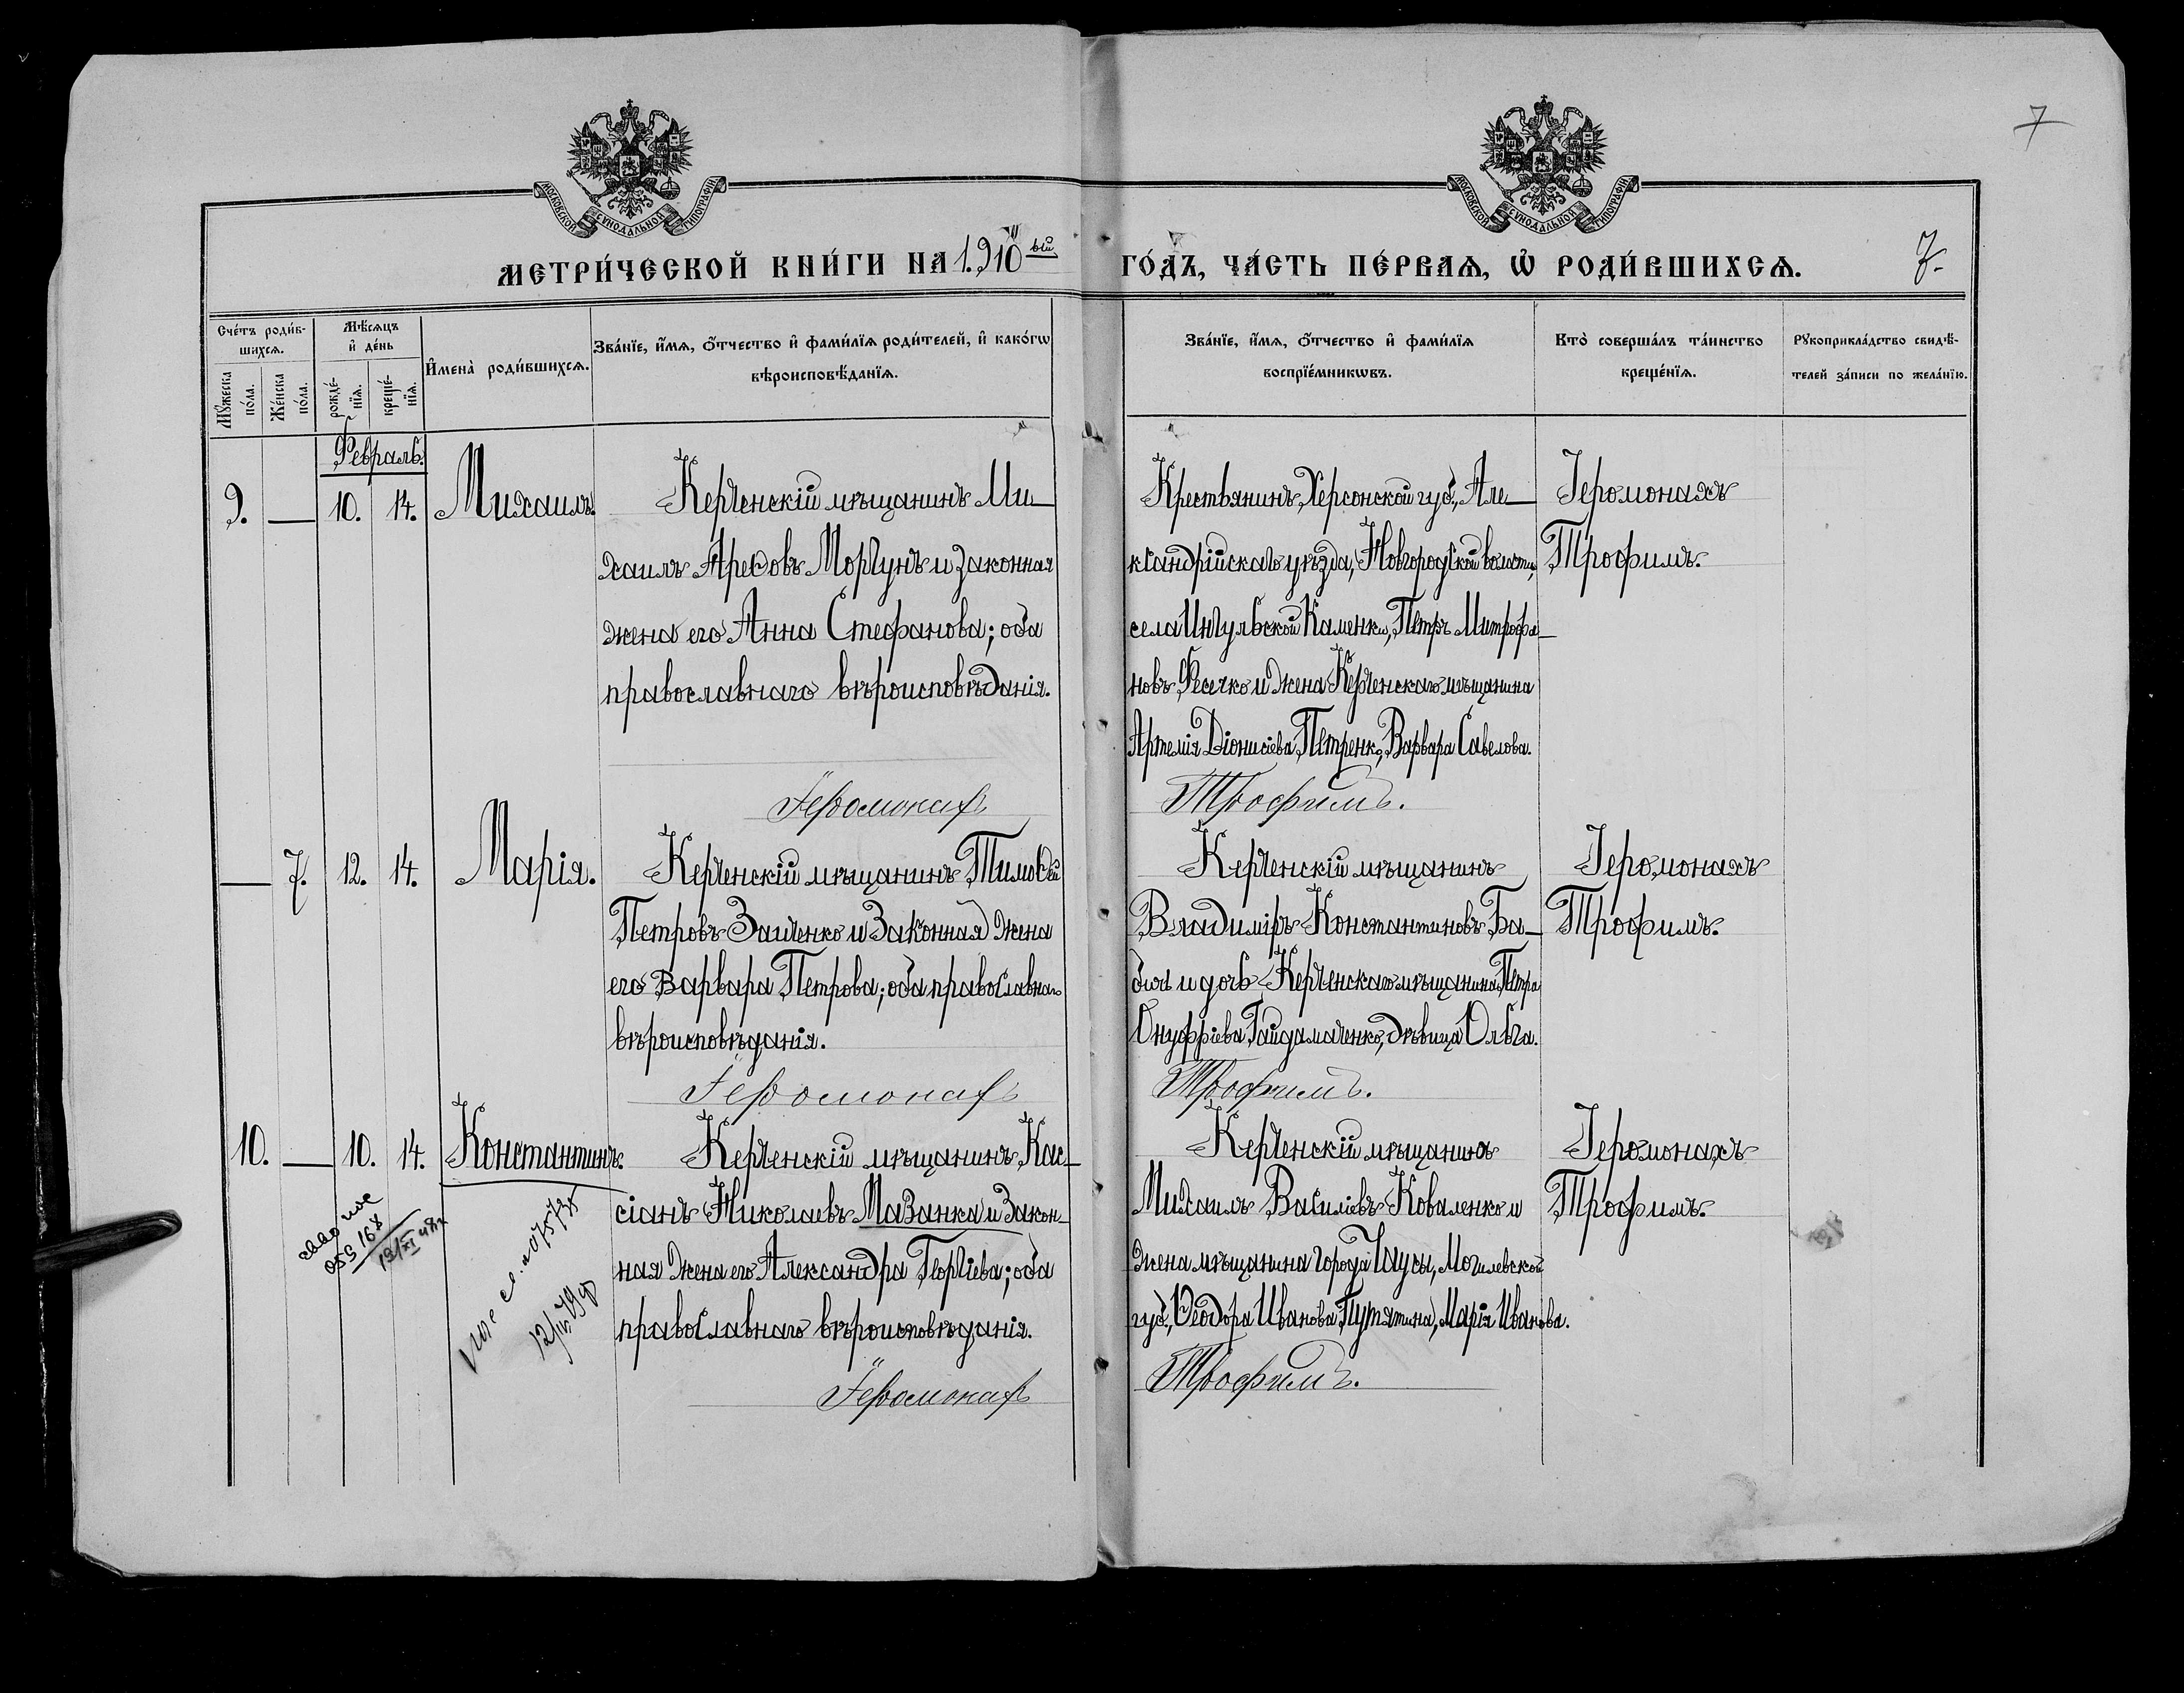 7
МОСКОВСКОЙ СУНОДАЛЬНОЙ ТИПОГРАФІИ.
МОСКОВСКОЙ СУНОДАЛЬНОЙ ТИПОГРАФІИ.
МЕТРИ́ЧЕСКОЙ КНИ́ГИ НА 1910ый ГО́ДЪ, ЧА́СТЬ ПЕ́РВАѦ, Ѡ РОДИ́ВШИХСѦ. 7.
Сче́тъ роди́в-
шихсѧ.
Мꙋ́жеска по́ла.
Же́нска по́ла.
Мѣ́сѧцъ
и҆ де́нь
рожде́-
нїѧ.
креще́-
нїѧ.
И҆мена̀ роди́вшихсѧ.
Зва́нїе, и҆́мѧ, ѻ҆́тчество и҆ фами́лїѧ роди́телей, и҆ како́гѡ
вѣроисповѣ́данїѧ.
Зва́нїе, и҆́мѧ, ѻ҆́тчество и҆ фами́лїѧ
воспрїе́мникѡвъ.
Кто̀ соверша́лъ та́инство
креще́нїѧ.
Рꙋкоприкла́дство свидѣ́-
телей за́писи по жела́нїю.
Февраль.
9. — 10. 14. Михаилъ.
Керченскій мѣщанинъ Ми-
хаилъ Ареѳовъ Моргунъ и законная
жена его Анна Стефанова; оба
православнаго вѣроисповѣданія.
Крестьянинъ Херсонской губ., Але-
ксандрійскаго уѣзда, Новгородской волости,
села Ингульской Каменки, Петръ Митрофа-
новъ Фесечко и жена Керченскаго мѣщанина
Артемія Діонисіева Петренко, Варвара Савелова.
Іеромонахъ
Трофимъ.
Іеромонахъ Трофимъ.
— 7. 12. 14. Марія.
Керченскій мѣщанинъ Тимоѳей
Петровъ Заиченко и законная жена
его Варвара Петрова; оба православнаго
вѣроисповѣданія.
Керченскій мѣщанинъ
Владиміръ Константиновъ Ба-
бичъ и дочь Керченскаго мѣщанина Петра
Онуфріева Гайдамаченко, дѣвица Ольга.
Іеромонахъ
Трофимъ.
Іеромонахъ Трофимъ.
10. — 10. 14. Константинъ.
Керченскій мѣщанинъ Кас-
сіанъ Николаевъ Мазанка и закон-
ная жена его Александра Георгіева; оба
православнаго вѣроисповѣданія.
Керченскій мѣщанинъ
Михаилъ Василіевъ Коваленко и
жена мѣщанина города Чаусы, Могилевской
губ., Ѳеодора Иванова Путятина, Марія Иванова.
Іеромонахъ
Трофимъ.
Іеромонахъ Трофимъ.